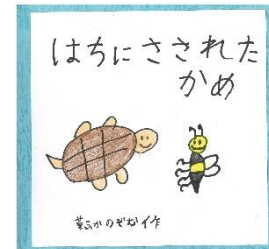 はちにさされた
かめ
のぞむ作